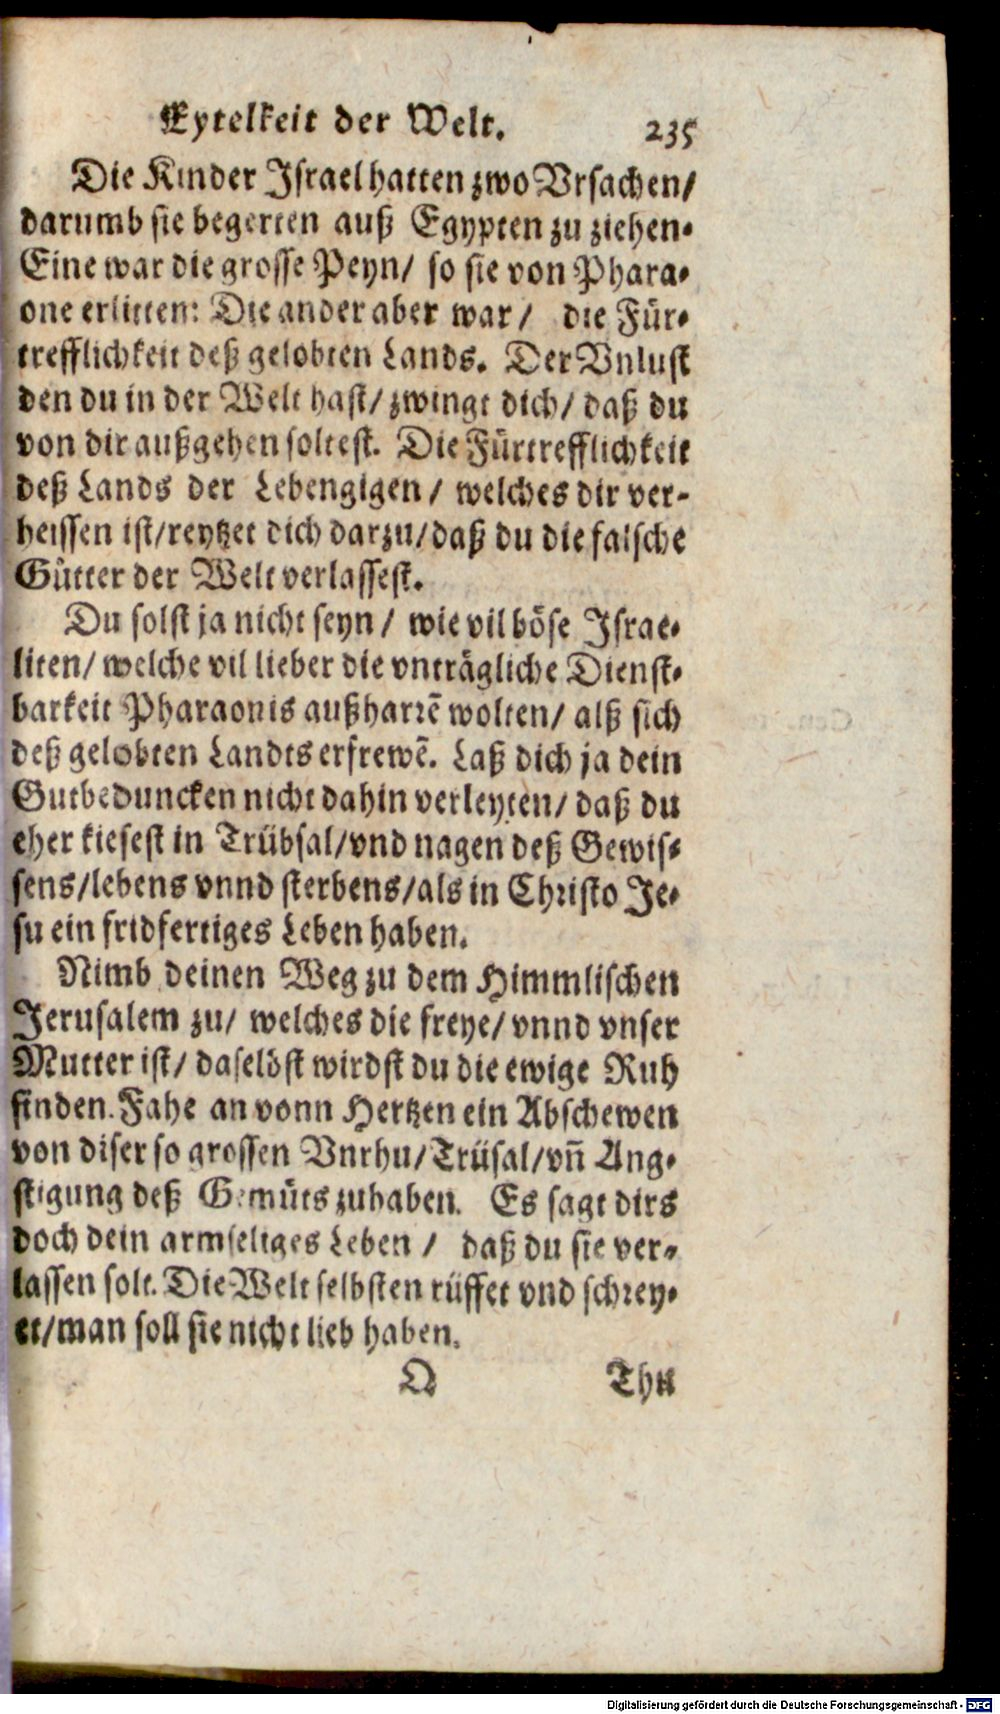 Eytelkeit der Welt. 235
Die Kinder Israel hatten zwo Vrsachen/
darumb sie begerten auß Egypten zu ziehen.
Eine war die grosse Peyn/ so sie von Phara-
one erlitten: Die ander aber war/ die Für-
trefflichkeit deß gelobten Lands. Der Vnlust
den du in der Welt hast/ zwingt dich/ daß du
von dir außgehen soltest. Die Fürtrefflichkeit
deß Lands der Lebengigen/ welches dir ver-
heissen ist/reytzet dich darzu/daß du die falsche
Gütter der Welt verlassest.
Du solst ja nicht seyn/ wie vil böse Israe-
liten/ welche vil lieber die vnträgliche Dienst-
barkeit Pharaonis außharrē wolten/ alß sich
deß gelobten Landts erfrewē. Laß dich ja dein
Gutbeduncken nicht dahin verleyten/ daß du
eher kiesest in Trübsal/vnd nagen deß Gewis-
sens/lebens vnnd sterbens/als in Christo Je-
su ein fridfertiges Leben haben.
Nimb deinen Weg zu dem Himmlischen
Jerusalem zu/ welches die freye/ vnnd vnser
Mutter ist/ daselbst wirdst du die ewige Ruh
finden. Fahe an vonn Hertzen ein Abschewen
von diser so grossen Vnrhu/Trüsal/vn̄ Ang-
stigung deß Gemüts zuhaben. Es sagt dirs
doch dein armseliges Leben/ daß du sie ver-
lassen solt. Die Welt selbsten rüffet vnd schrey-
et/man soll sie nicht lieb haben.
Q Thu
Digitalisierung gefördert durch die Deutsche Forschungsgemeinschaft - DFG